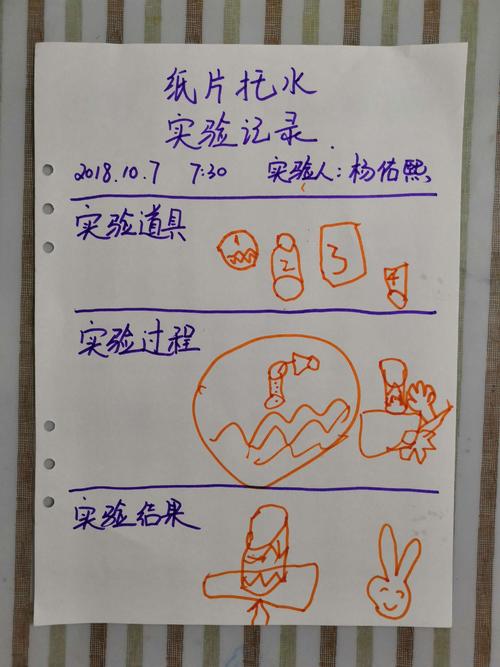 纸片托水
实验记录.
2018.10.7 7:30 实验人:杨佑熙
实验道具
1 2 3 4
实验过程
实验结果